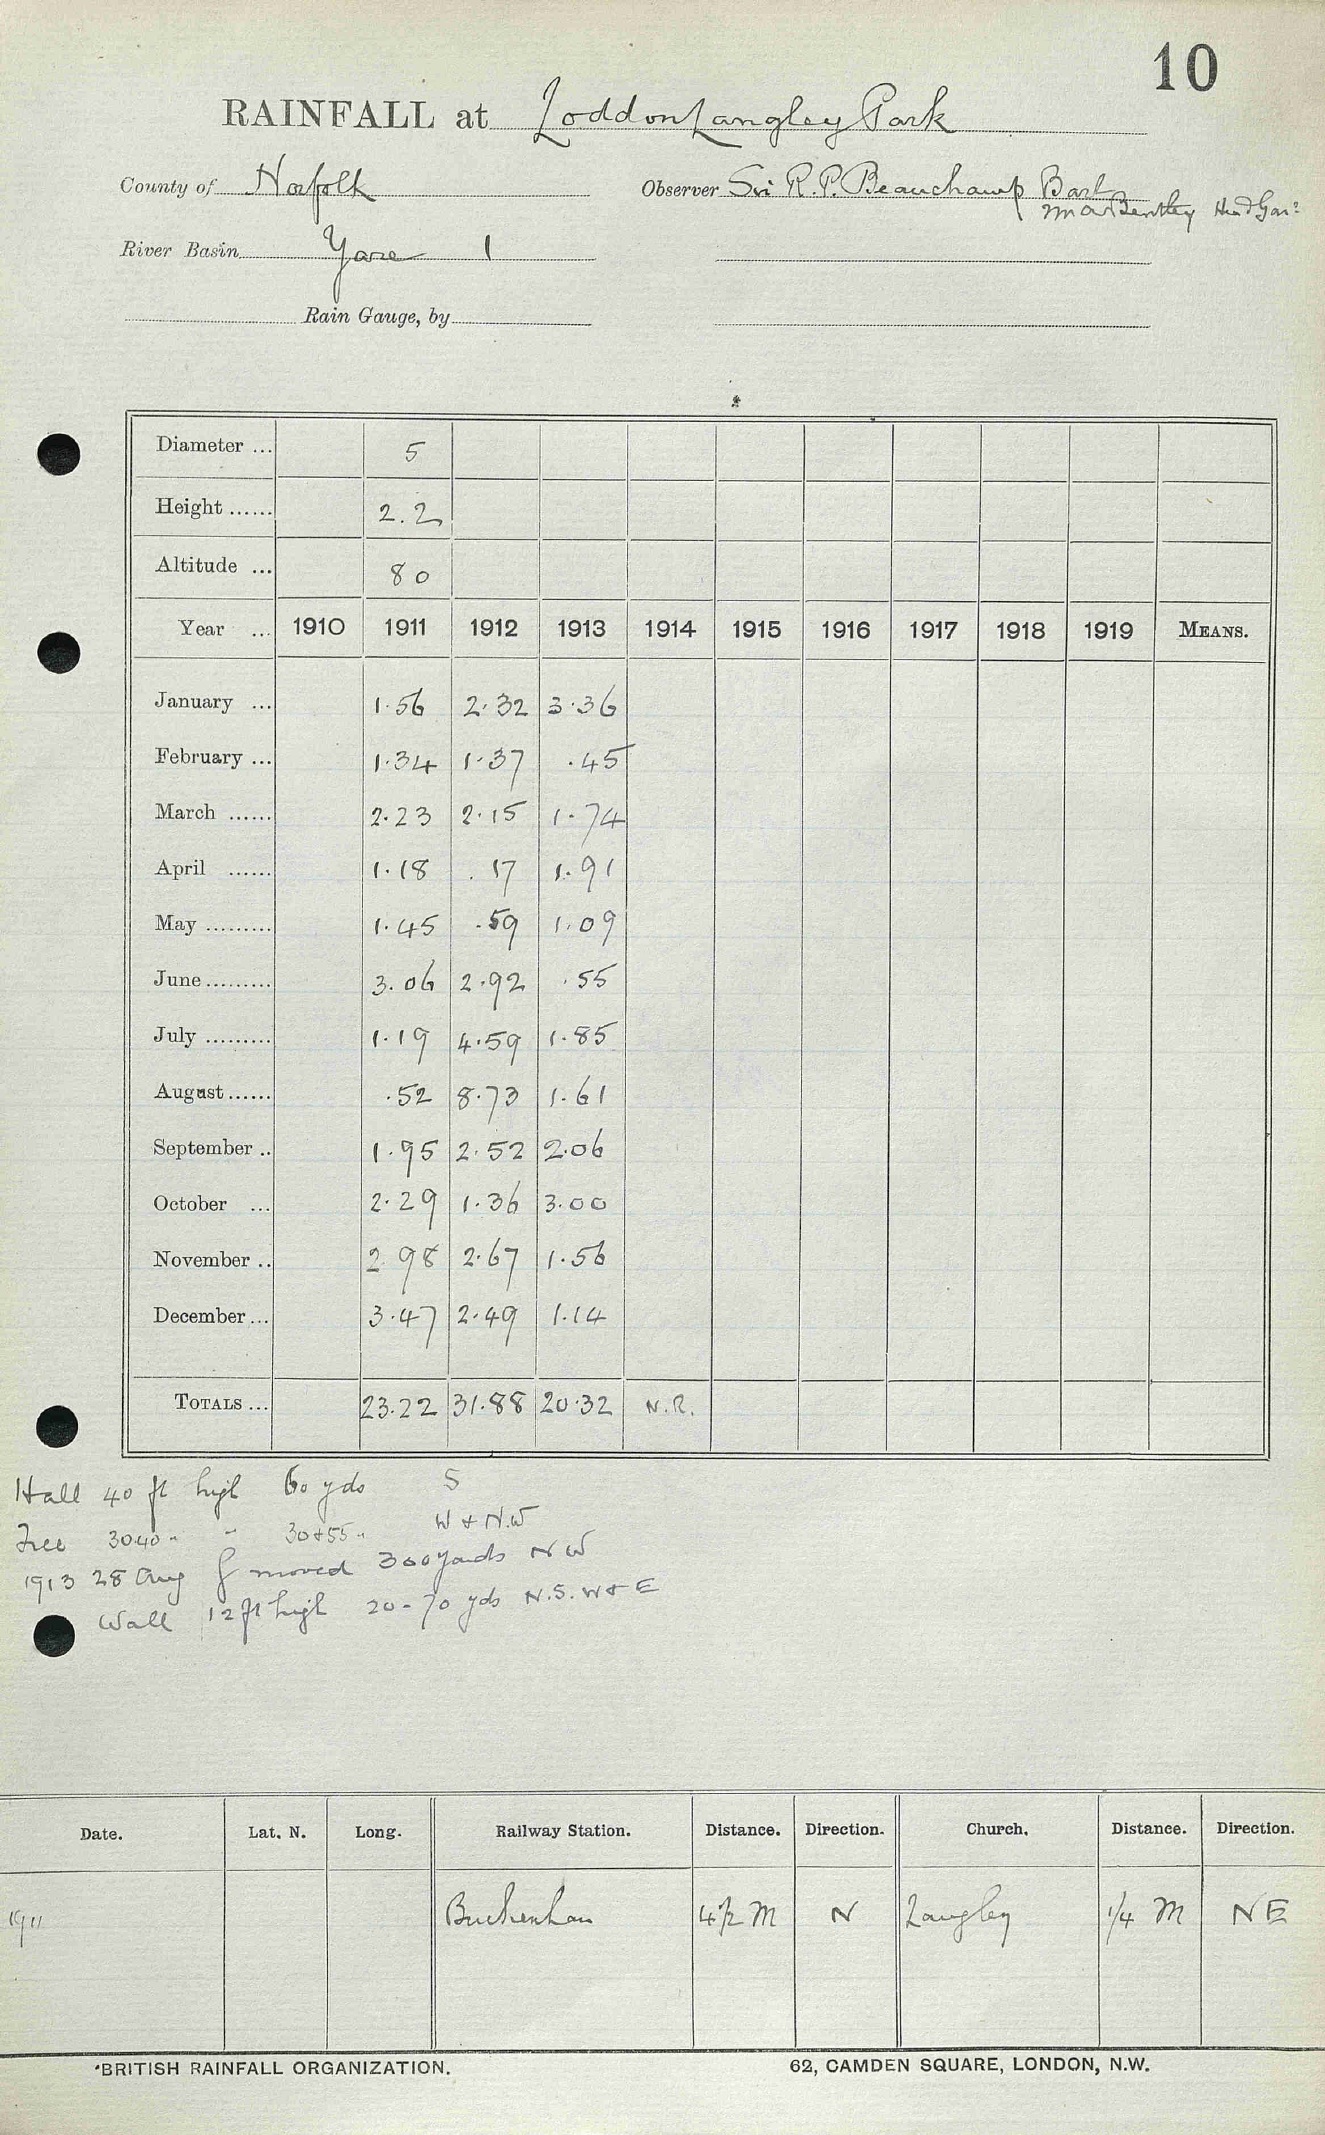 10
RAINFALL at Loddon Langley Park
County of Norfolk Observer Sir R. P. Beauchamp Bart
Bentley Head Gar
River Basin Yare 1
Rain Gauge, by
Diameter ... 5
Height ...... 2.2
Altitude ... 80
Year ... 1910 1911 1912 1913 1914 1915 1916 1917 1918 1919 MEANS.
January ... 1.56 2.32 3.36
February ... 1.34 1.37 .45
March ...... 2.23 2.15 1.74
April ...... 1.18 .17 1.91
May ......... 1.45 .59 1.09
June ......... 3.06 2.92 .55
July ......... 1.19 4.59 1.85
August ...... .52 8.73 1.61
September .. 1.95 2.52 2.06
October ... 2.29 1.36 3.00
November .. 2.98 2.67 1.56
December ... 3.47 2.49 1.14
TOTALS ... 23.22 31.88 20.32 N.R.
Hall 40 ft high 60 yds S
Tree 30 40 " " 30 & 55 " W & N.W
1913 28 Aug g moved 300 yards NW
Wall 12 ft high 20-70 yds N.S. W & E
Date. Lat. N. Long. Railway Station. Distance. Direction. Church. Distance. Direction.
1911 Buckenham 4½ M N Langley ¼ M NE
BRITISH RAINFALL ORGANIZATION. 62, CAMDEN SQUARE, LONDON, N.W.